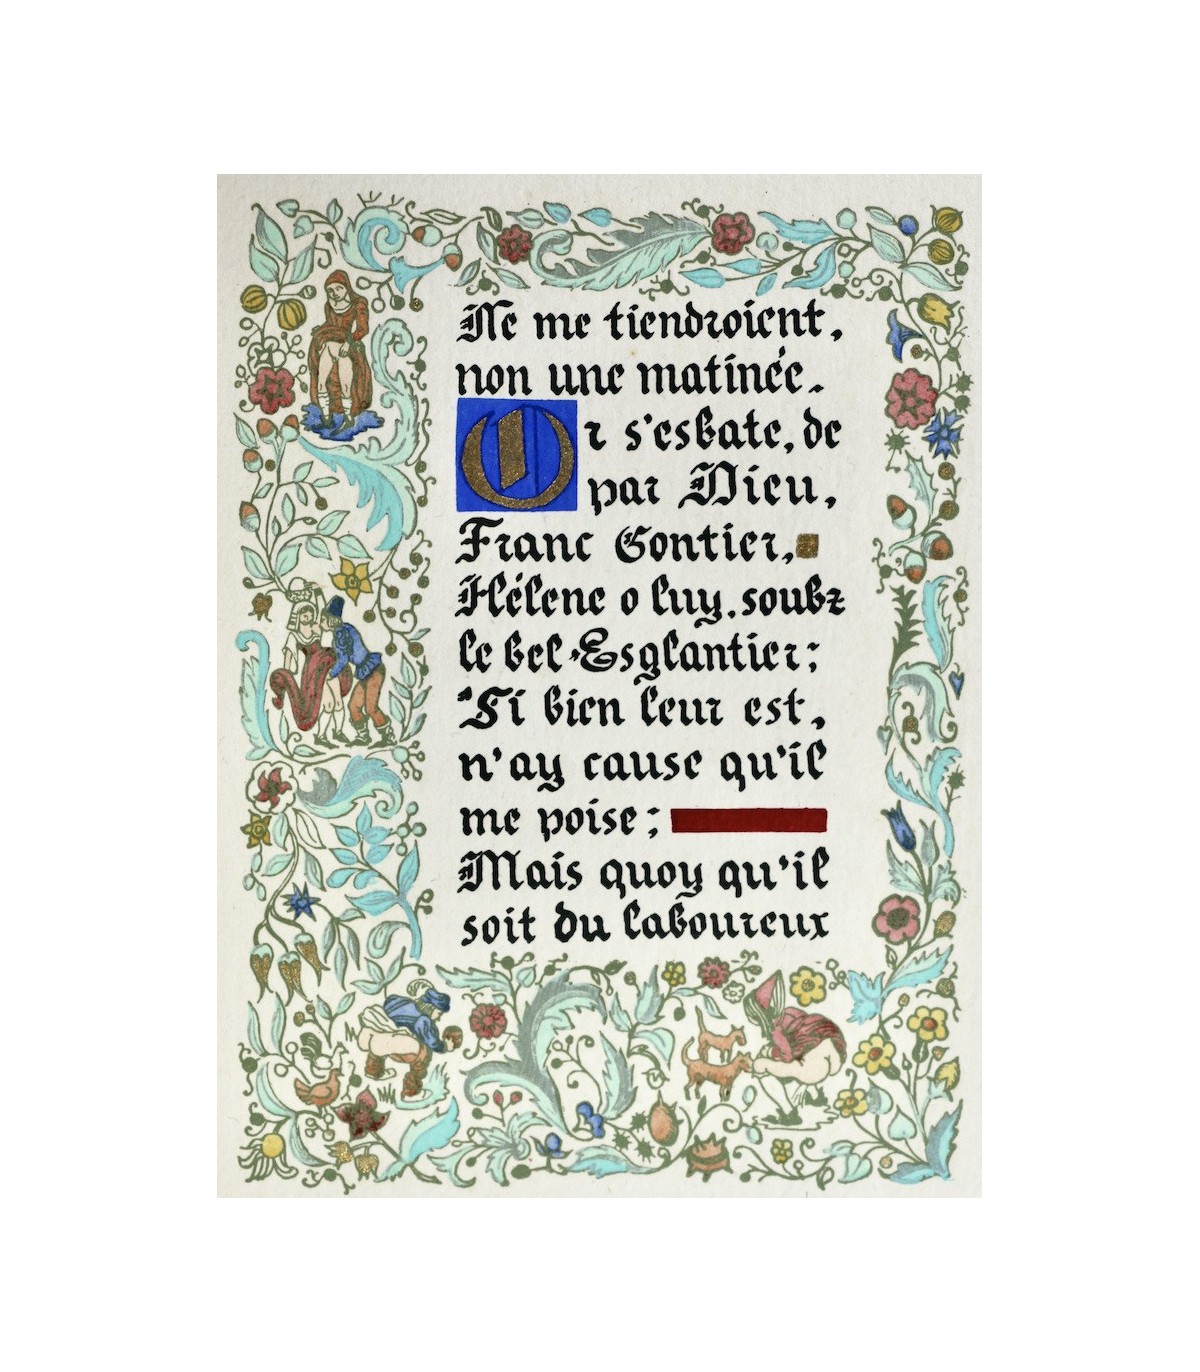 Ne me tiendroient,
non une matinée.
Or s'esbate, de
par Dieu,
Franc Gontier,
Hélene o luy, soubz
le bel Esglantier;
Si bien leur est,
n'ay cause qu'il
me poise;
Mais quoy qu'il
soit du laboureux